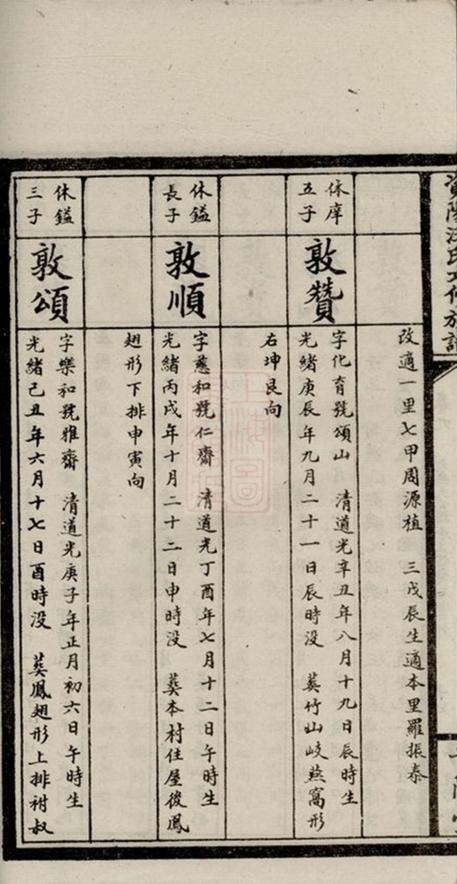 改適一里七甲周源植 三戊辰生適本里羅振泰
休庠五子
敦贊
字化育號頌山 清道光辛丑年八月十九日辰時生
光緒庚辰年九月二十一日辰時没 葬竹山岐燕窩形
右坤艮向
休鎰長子
敦順
字慈和號仁齋 清道光丁酉年七月十二日午時生
光緒丙戌年十月二十二日申時没 葬本村住屋後鳳
翅形下排申寅向
休鎰三子
敦頌
字樂和號雅齋 清道光庚子年正月初六日午時生
光緒己丑年六月十七日酉時没 葬鳳翅形上排祔叔